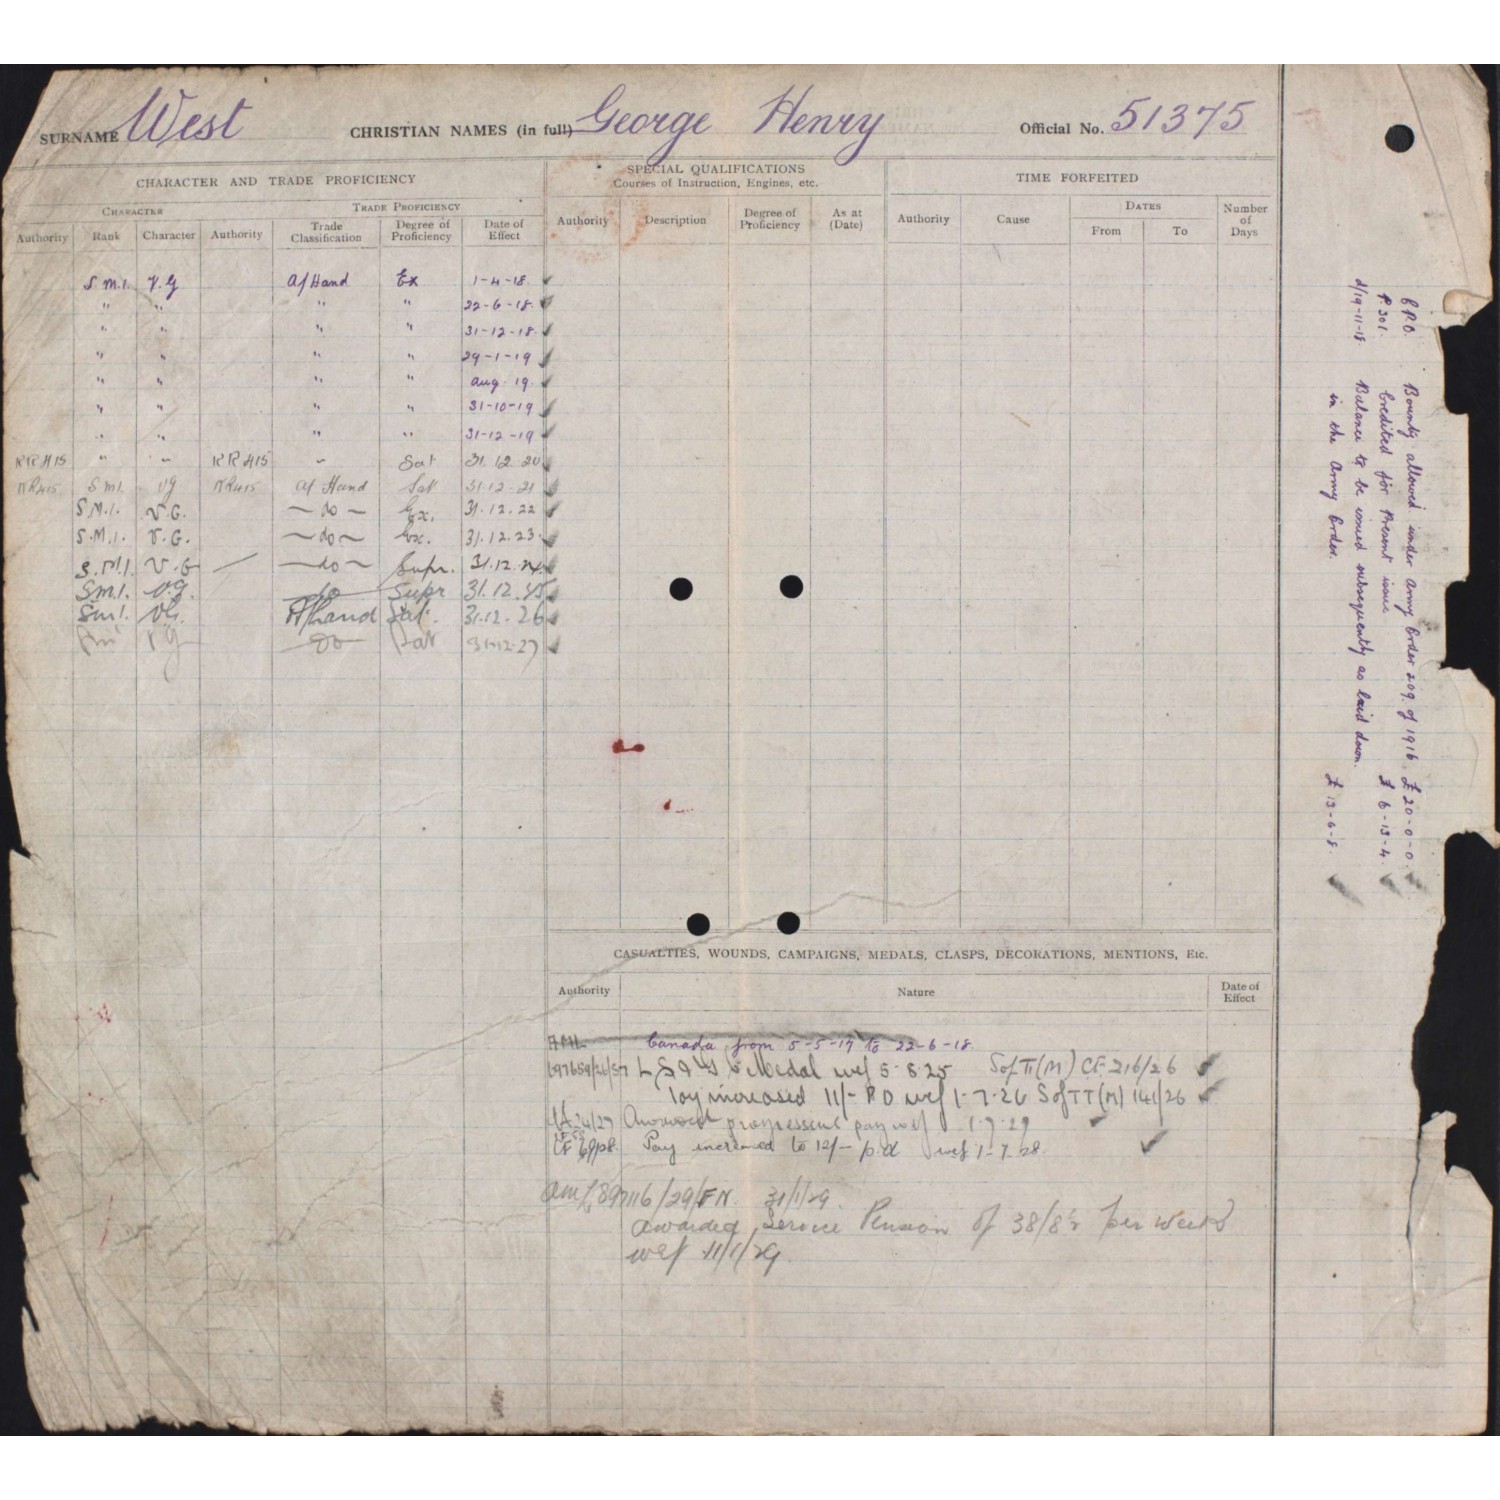 SURNAME West CHRISTIAN NAMES (in full) George Henry Official No. 51375
CHARACTER AND TRADE PROFICIENCY
CHARACTER TRADE PROFICIENCY
Authority Rank Character Authority Trade Classification Degree of Proficiency Date of Effect
S.M.1. V.G A/Hand Ex 1-4-18.
" " " " 22-6-18.
" " " " 31-12-18.
" " " " 29-1-19
" " " " Aug. 19.
" " " " 31-10-19
" " " " 31-12-19
KR415 " " KR415 " Sat 31.12.20
KR415 S.M.1. VG KR415 A/Hand Sat 31.12.21
S.M.1. V.G. —do— Ex. 31.12.22
S.M.1. V.G. —do— Ex. 31.12.23.
S.M.1. V.G —do— Supr. 31.12.24
Sm1. V.G. do Supr 31.12.25
Sm1. VG. A/hand Sat. 31.12.26
VG do Sat 31.12.27
SPECIAL QUALIFICATIONS
Courses of Instruction, Engines, etc.
Authority Description Degree of Proficiency As at (Date)
TIME FORFEITED
Authority Cause DATES From To Number of Days
CASUALTIES, WOUNDS, CAMPAIGNS, MEDALS, CLASPS, DECORATIONS, MENTIONS, Etc.
Authority Nature Date of Effect
Canada from 5-5-17 to 22-6-18.
L.S & G.C Medal wef 5.8.25 S of TT(M) CF 216/26
Pay increased 11/- P.D wef 1-7-26 S of TT(M) 141/26
24/27 pay wef 1-7-27
Pay increased to 12/- p.d wef 1-7-28.
/29/FN 31/1/29.
Awarded Service Pension of 38/8½ per week
wef 11/1/29.
C.P.O. Bounty allowed under Army Order 209. of 1916. £20-0-0.
P.301. Credited for Present issue £6-13-4.
d/19-11-18. Balance to be issued subsequently as laid down.
in the Army Order. £13-6-8.